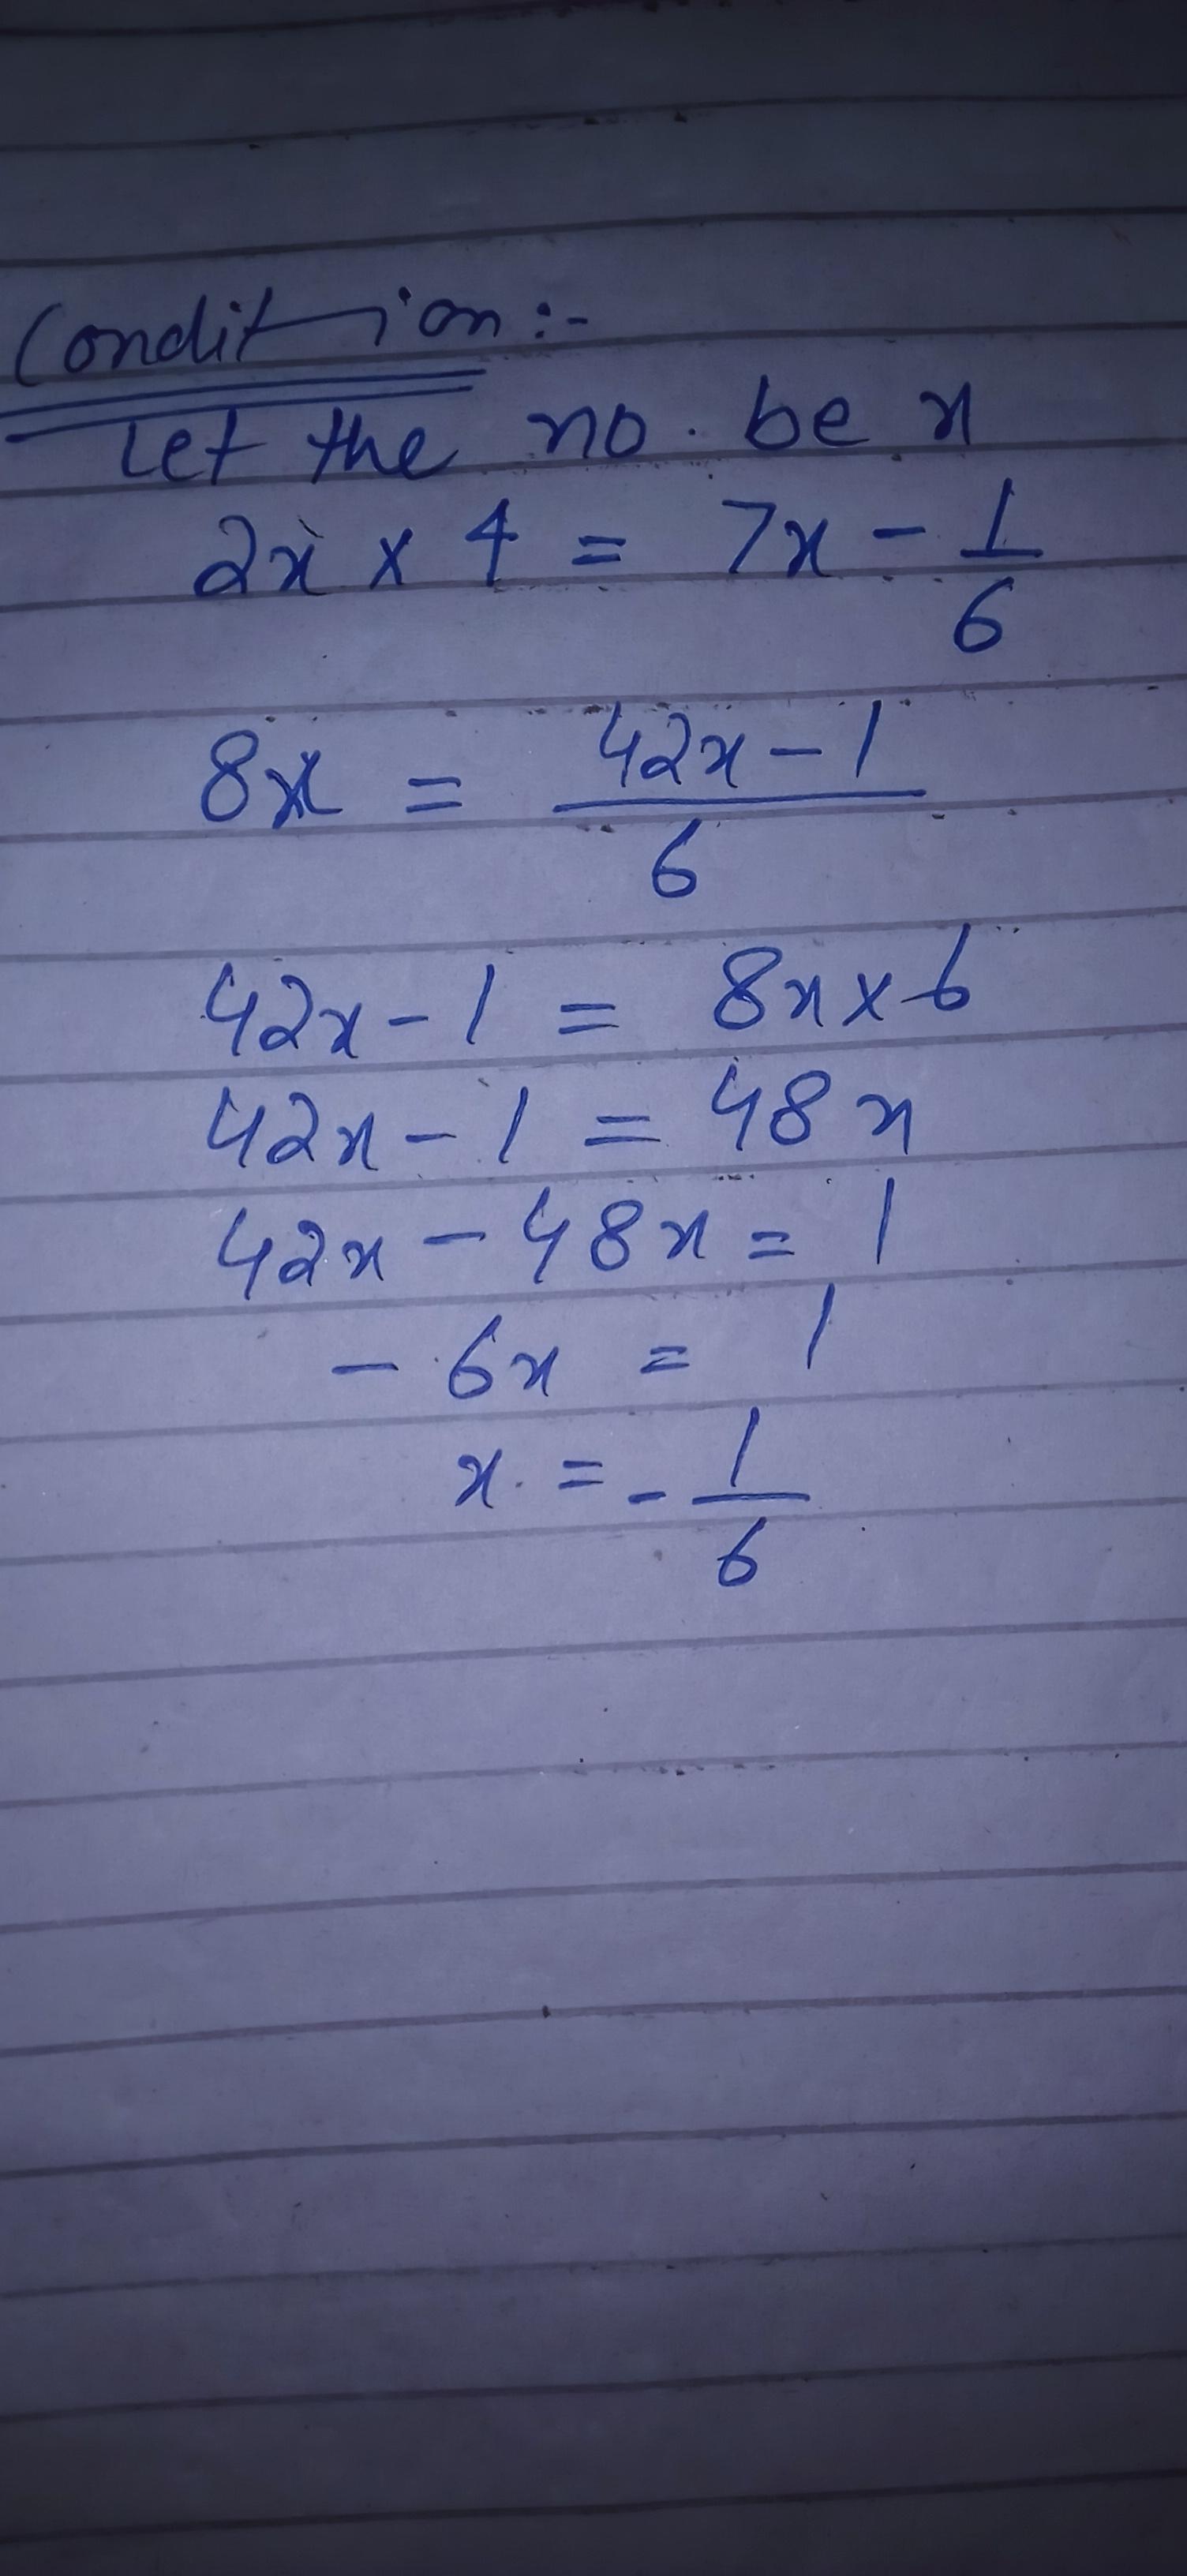 Condition :-
Let the no. be x
2x × 4 = 7x - 1/6
8x = (42x - 1)/6
42x - 1 = 8x × 6
42x - 1 = 48x
42x - 48x = 1
- 6x = 1
x = - 1/6